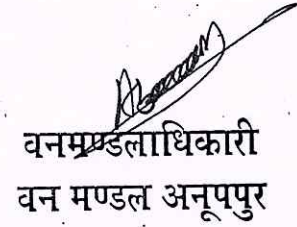 वनमण्डलाधिकारी
वन मण्डल अनूपपुर